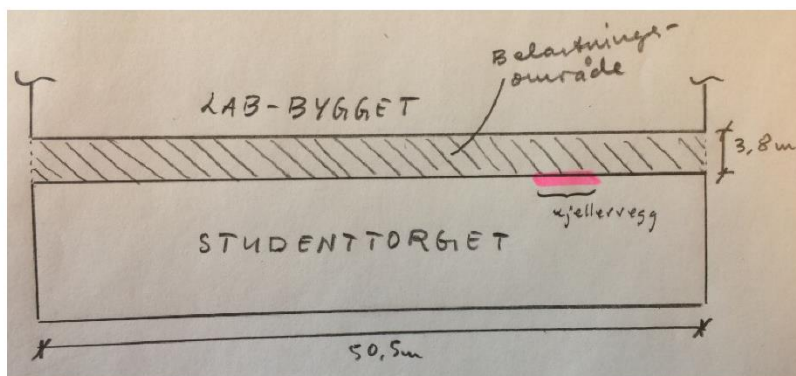 Belastnings-
område
LAB-BYGGET
3,8m
kjellervegg
STUDENTTORGET
50,5m